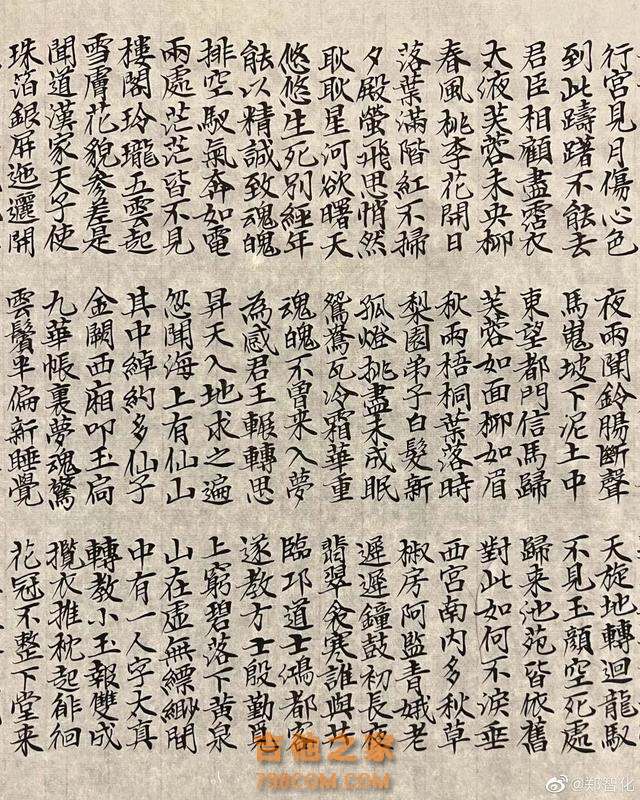 行宮見月傷心色 夜雨聞鈴腸斷聲 天旋地轉迴龍馭
到此躊躇不能去 馬嵬坡下泥土中 不見玉顏空死處
君臣相顧盡霑衣 東望都門信馬歸 歸来池苑皆依舊
太液芙蓉未央柳 芙蓉如面柳如眉 對此如何不淚垂
春風桃李花開日 秋雨梧桐葉落時 西宮南內多秋草
落葉滿階紅不掃 梨園弟子白髮新 椒房阿監青娥老
夕殿螢飛思悄然 孤燈挑盡未成眠 遲遲鐘鼓初長夜
耿耿星河欲曙天 鴛鴦瓦冷霜華重 翡翠衾寒誰與共
悠悠生死別經年 魂魄不曾来入夢 臨邛道士鴻都客
能以精誠致魂魄 為感君王輾轉思 遂教方士殷勤覓
排空馭氣奔如電 昇天入地求之遍 上窮碧落下黃泉
兩處茫茫皆不見 忽聞海上有仙山 山在虛無縹緲間
樓閣玲瓏五雲起 其中綽約多仙子 中有一人字太真
雪膚花貌參差是 金闕西廂叩玉扃 轉教小玉報雙成
聞道漢家天子使 九華帳裏夢魂驚 攬衣推枕起徘徊
珠箔銀屏迤邐開 雲鬢半偏新睡覺 花冠不整下堂来
吉他之家
798COM.COM
@郑智化